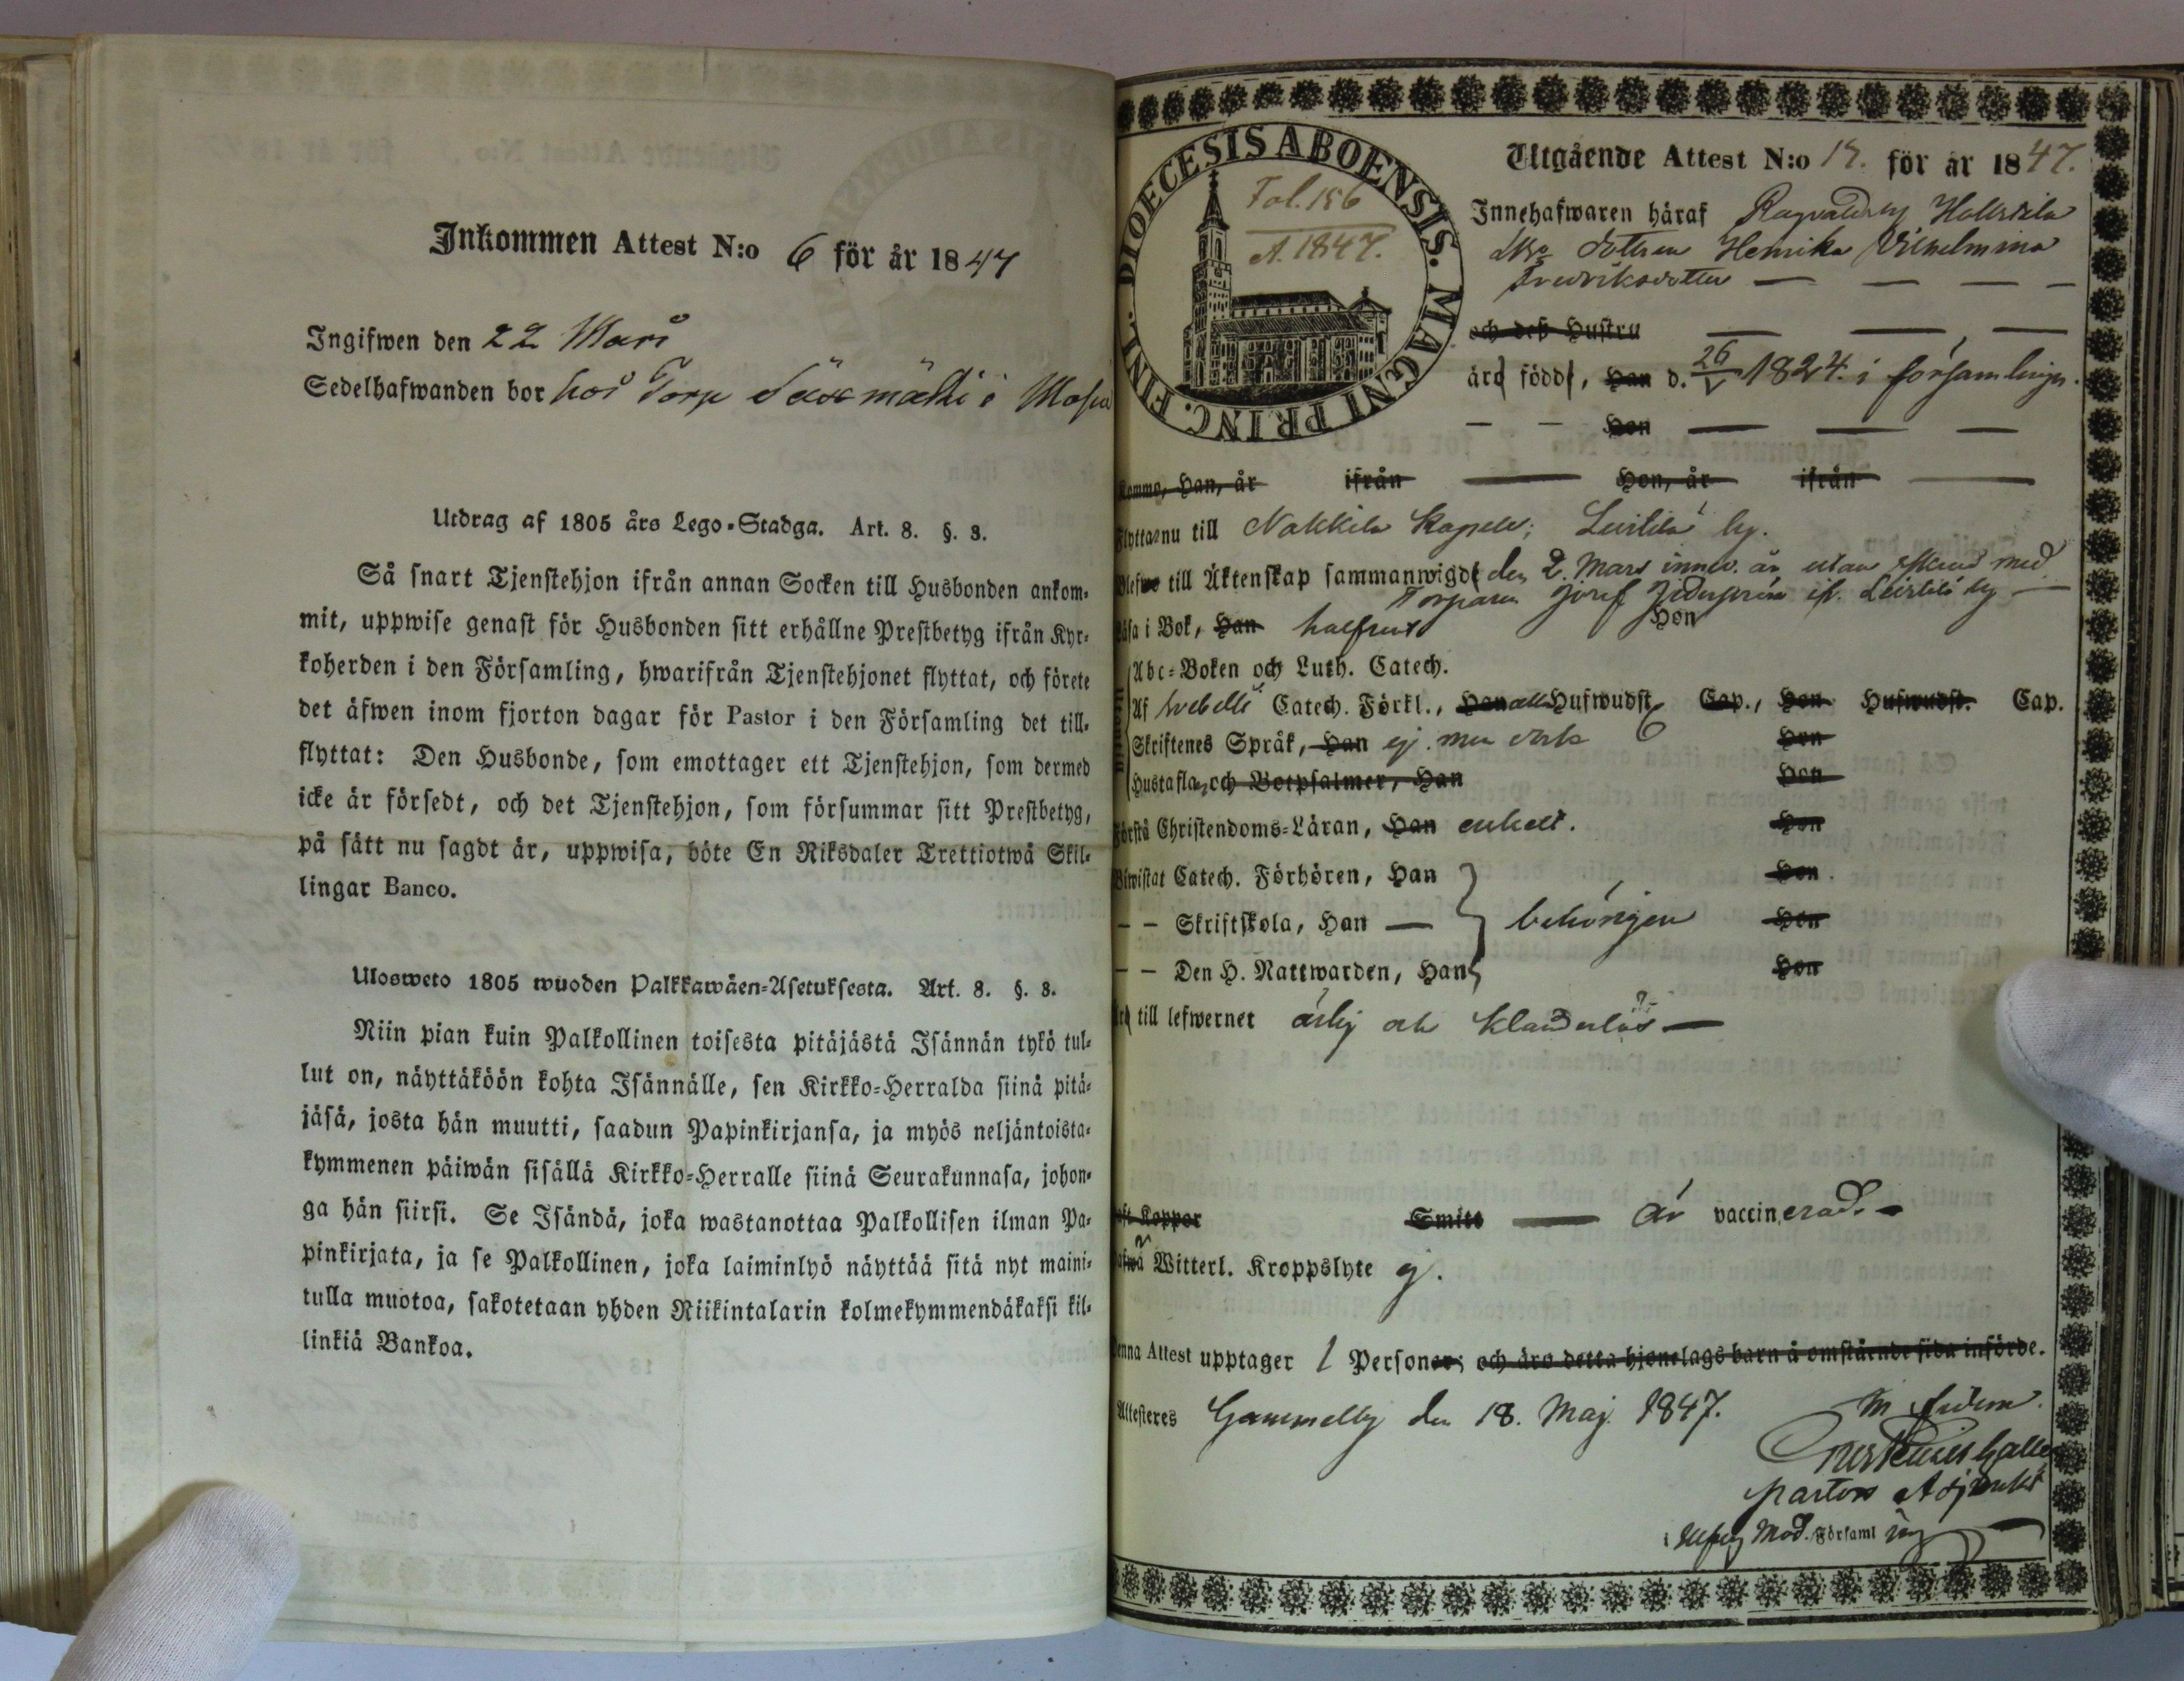 Inkommen Attest N:o 6 för år 1847
Ingifwen den 22 Mars
Sedelhafwanden bor hos Torp i
Utdrag af 1805 års Lego-Stadga. Art. 8. §. 3.
Så snart Tjenstehjon ifrån annan Socken till Husbonden ankom-
mit, uppwise genast för Husbonden sitt erhållne Prestbetyg ifrån Kyr-
koherden i den Församling, hwarifrån Tjenstehjonet flyttat, och förete
det äfwen inom fjorton dagar för Pastor i den Församling det till-
flyttat: Den Husbonde, som emottager ett Tjenstehjon, som dermed
icke är försedt, och det Tjenstehjon, som försummar sitt Prestbetyg,
på sätt nu sagdt är, uppwisa, böte En Riksdaler Trettiotwå Skil-
lingar Banco.
Ulosweto 1805 wuoden Palkkawäen-Asetuksesta. Art. 8. §. 3.
Niin pian kuin Palkollinen toisesta pitäjästä Isännän tykö tul-
lut on, näyttäköön kohta Isännälle, sen Kirkko-Herralda siinä pitä-
jäsä, josta hän muutti, saadun Papinkirjansa, ja myös neljäntoista-
kymmenen päiwän sisällä Kirkko-Herralle siinä Seurakunnasa, johon-
ga hän siirsi. Se Isändä, joka wastanottaa Palkollisen ilman Pa-
pinkirjata, ja se Palkollinen, joka laiminlyö näyttää sitä nyt maini-
tulla muotoa, sakotetaan yhden Riikintalarin kolmekymmendäkaksi kil-
linkiä Bankoa.
DIOECESIS ABOENSIS. MAGNI PRINC. FINL.
Fol. 156
A. 1847.
Utgående Attest N:o 17. för år 1847.
Innehafwaren häraf Ragvaldsby
Dottren Henrika Vilhelmina
Fredriksdotter
och deß Hustru
äro födde, Han d. 26/V 1824. i församlingen.
Hon
Komma, Han, år ifrån Hon, år ifrån
Flytta nu till Nakkila Kapell; Leistilä by.
Blefwo till Äktenskap sammanwigde den 2. Mars innev. år utan med
Torparen Josef if. Leistilä by
Läsa i Bok, Han Hon
Abc-Boken och Luth. Catech.
Af Svebelii Catech. Förkl., Han alla Hufwudst. 6 Cap., Hon Hufwudst. Cap.
Skriftenes Språk, Han ej. Hon
Hustaflan och Botpsalmer, Han Hon
Förstå Christendoms-Läran, Han enkelt. Hon
Biwistat Catech. Förhören, Han Hon
— — Skriftskola, Han — behörigen Hon
— — Den H. Nattwarden, Han Hon
Äro till lefwernet ärlig och klanderlös —
Haft Koppor Smitt — är vaccinerad. —
Hafwa Witterl. Kroppslyte ej.
Denna Attest upptager 1 Personer; och äro detta hjonelags barn å omstående sida införde.
Attesteres Gammelby den 18. Maj 1847.
In fidem.
Pastors Adjunkt
i Ulfsby Mod. Församling